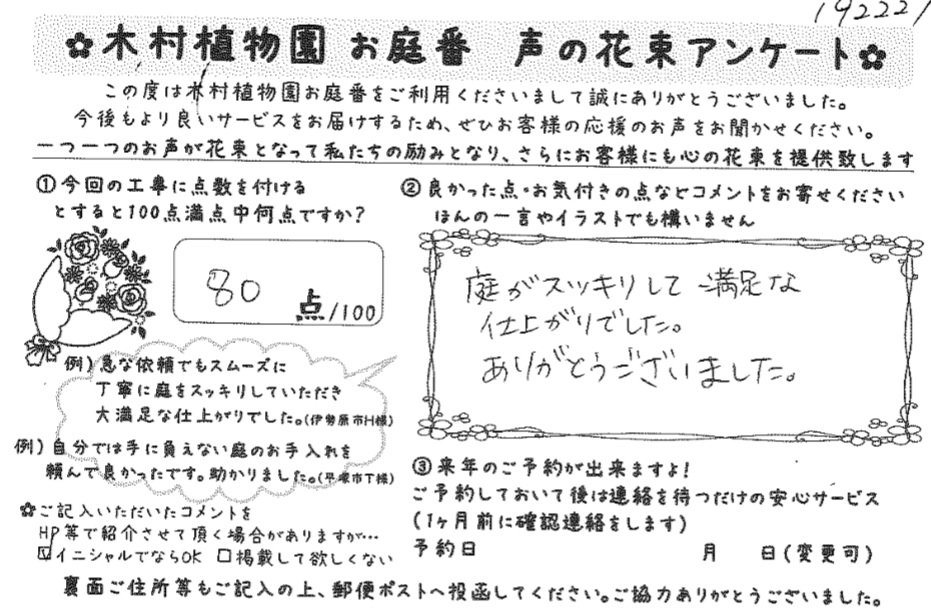 192221
✿木村植物園 お庭番 声の花束アンケート✿
この度は木村植物園お庭番をご利用くださいまして誠にありがとうございました。
今後もより良いサービスをお届けするため、ぜひお客様の応援のお声をお聞かせください。
一つ一つのお声が花束となって私たちの励みとなり、さらにお客様にも心の花束を提供致します
①今回の工事に点数を付ける
とすると100点満点中何点ですか?
80 点/100
例)急な依頼でもスムーズに
丁寧に庭をスッキリしていただき
大満足な仕上がりでした。(伊勢原市H様)
例)自分では手に負えない庭のお手入れを
頼んで良かったです。助かりました。(平塚市T様)
✿ご記入いただいたコメントを
HP等で紹介させて頂く場合がありますが…
☑イニシャルでならOK □掲載して欲しくない
②良かった点・お気付きの点などコメントをお寄せください
ほんの一言やイラストでも構いません
庭がスッキリして満足な
仕上がりでした。
ありがとうございました。
③来年のご予約が出来ますよ!
ご予約しておいて後は連絡を待つだけの安心サービス
(1ヶ月前に確認連絡をします)
予約日 月 日(変更可)
裏面ご住所等もご記入の上、郵便ポストへ投函してください。ご協力ありがとうございました。